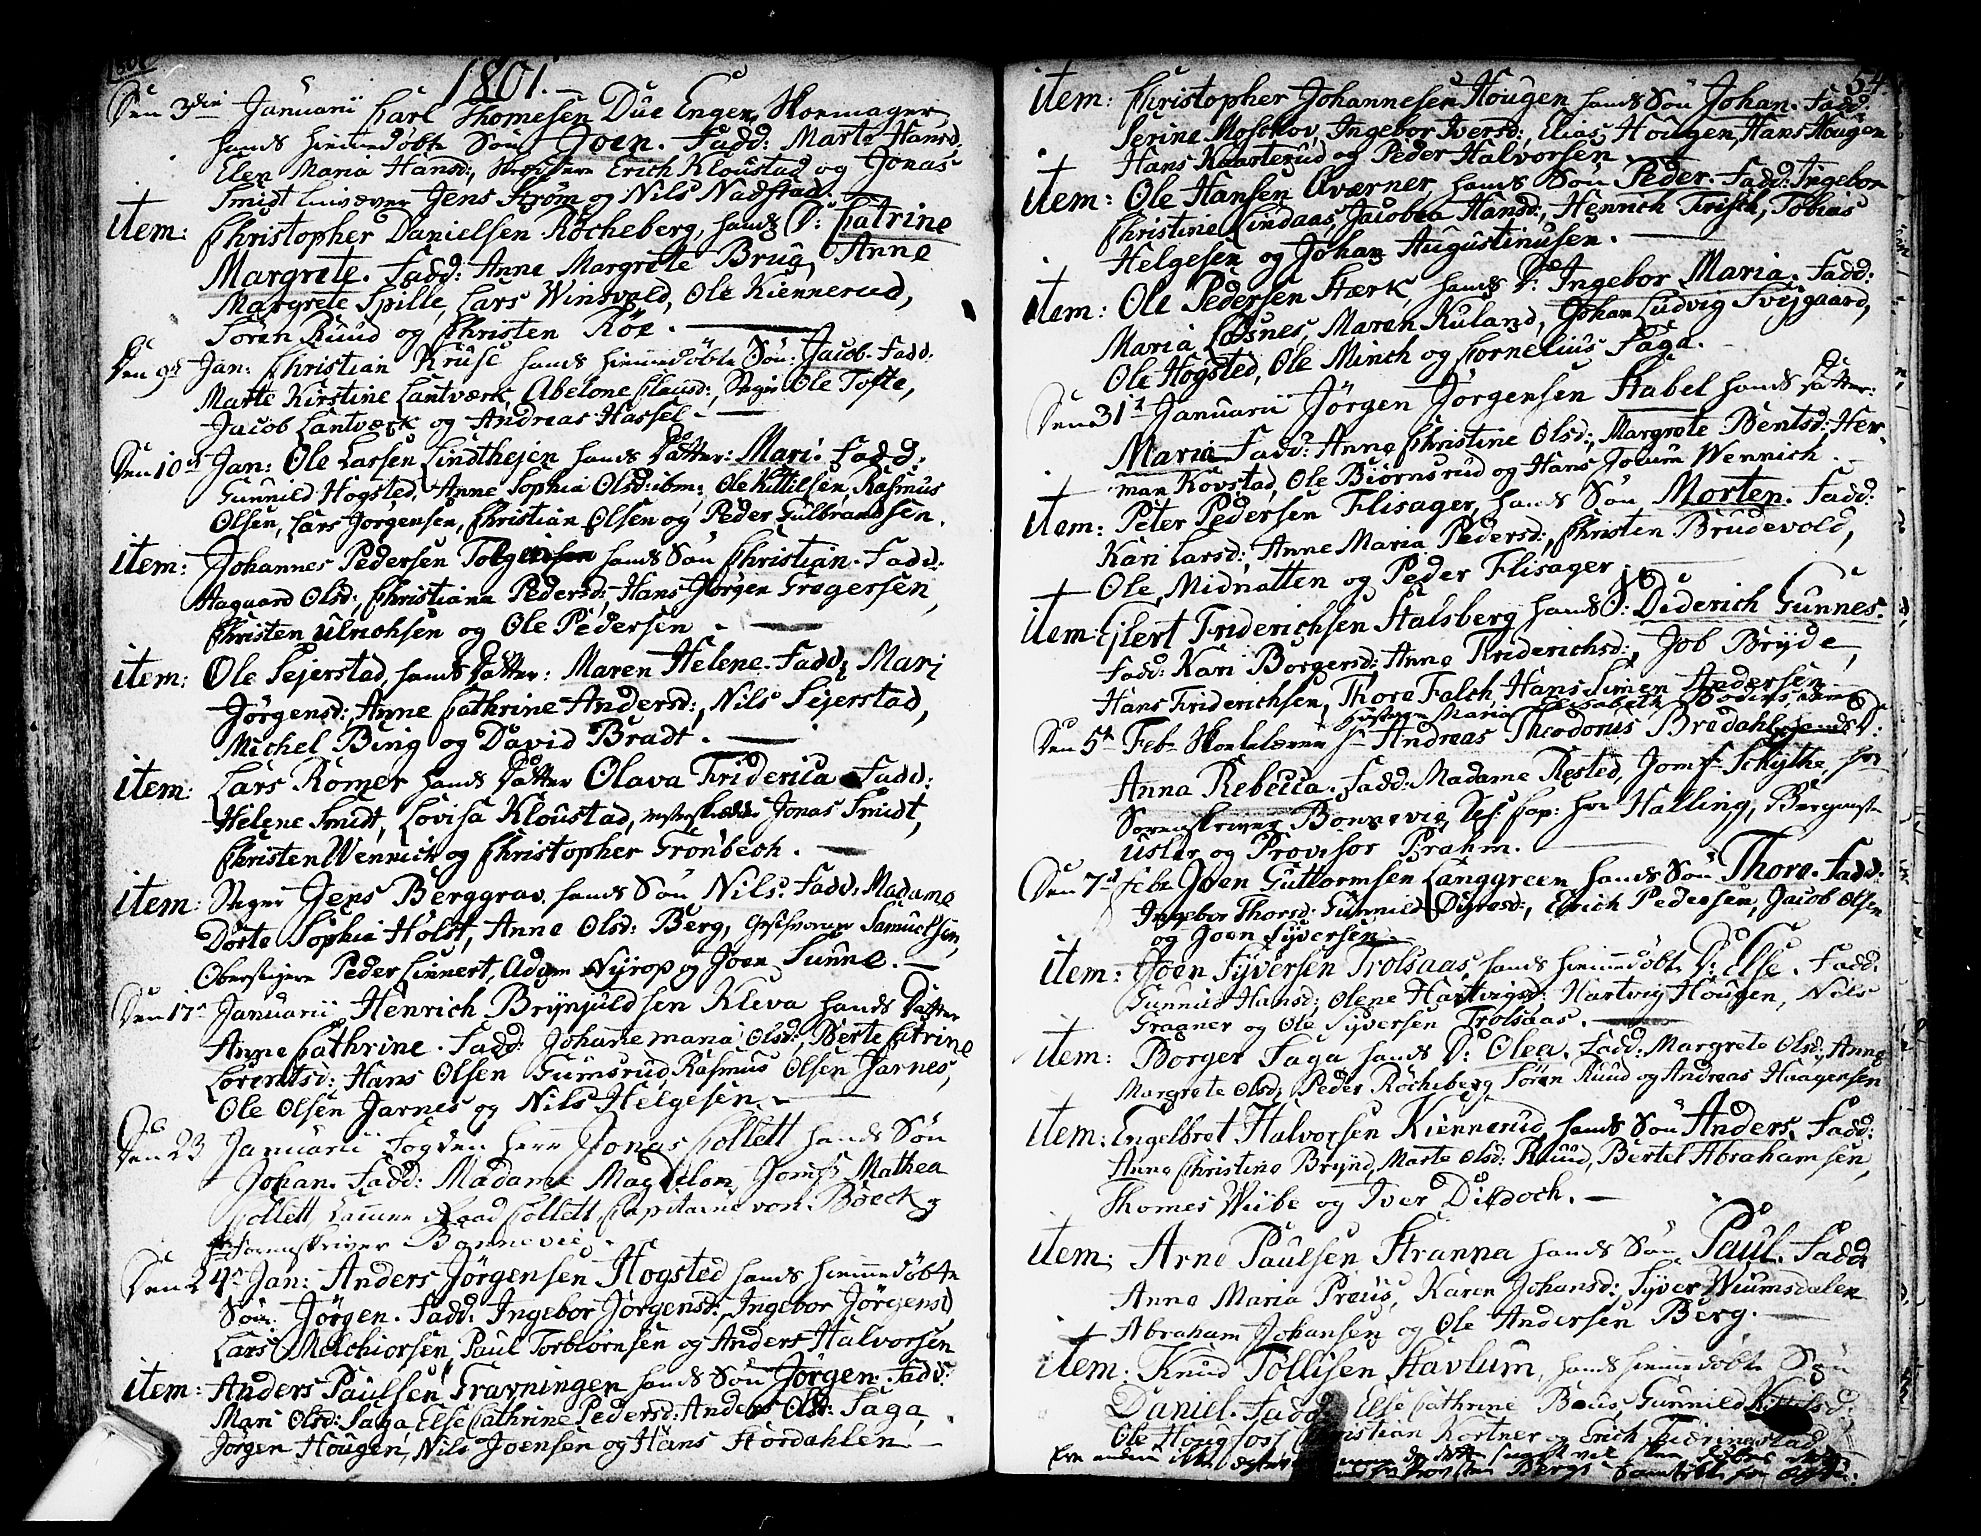 1801.
Den 3die Januarii Carl Thomesen Due Engen, Skoemager
hands hiemmedøbte Søn Joen. Fadd: Marte Hansd:
Elen Maria Hansd:, Erich Kloustad og Jonas
Smidt Jens Strøm og Nils Nadstad.
item: Christopher Danielsen Røcheberg, hands D: Catrine
Margrete. Fadd: Anne Margrete Brug, Anne
Margrete Spille, Lars Winsvold, Ole Kiennerud,
Søren Ruud og Christen Röe.
Den 9de Jan: Christian Kruse hands hiemmedøbte Søn: Jacob. Fadd:
Marte Kirstine Lantværk, Abelone Clausd:, Ole Tofte,
Jacob Lantværk og Andreas Hassel.
Den 10de Jan: Ole Larsen Lindthejen hands Datter: Mari. Fadd:
Gunnild Hogsted, Anne Sophia Olsd: ibm:, Ole Kittilsen, Rasmus
Olsen, Lars Jørgensen, Christian Olsen og Peder Gulbrandsen.
item: Johannes Pedersen hands Søn Christian. Fadd:
Aagaard Olsd:, Christiana Pedersd:, Hans Jørgen Gregersen,
Christen Ulrichsen og Ole Pedersen.
item: Ole Sejerstad, hands Datter: Maren Helene. Fadd: Mari
Jørgensd:, Anne Cathrine Andersd:, Nils Sejerstad,
Michel Bing og David Bradt.
item: Lars Romer hands Datter Olava Friderica. Fadd:
Helene Smidt, Lovisa Kloustad, Jonas Smidt,
Christen Wennich og Christopher Grønbech.
item: Stiger Jens Berggrav hands Søn Nils. Fadd: Madame
Dorte Sophia Holst, Anne Olsd: Berg, Samuelsen,
Oberstigere Peder Linnert, Adam Nyrop og Joen Sunne.
Den 17de Januarii Henrich Brynjuldsen Kleva hands Datter
Anne Cathrine. Fadd: Johanne Maria Olsd:, Berte Catrine
Lorentsd: Hans Olsen Gumsrud, Rasmus Olsen Jarnes,
Ole Olsen Jarnes og Nils Helgesen.
Den 23 Januarii Fogden Herr Jonas Collett hands Søn
Johan. Fadd: Madame Magdelon, Jomfr Mathea
Collett, Collett, Capitaine von Böeck og
Hr Sorenskriver Bonnevie.
Den 24de Jan: Anders Jørgensen Hogsted hands hiemmedøbte
Søn: Jørgen. Fadd: Ingebor Jørgensd:, Ingebor Jørgensd
Lars Melchiorsen, Paul Torbiørnsen og Anders Halvorsen
item: Anders Paulsen Gravningen hands Søn Jørgen. Fadd:
Mari Olsd: Saga, Else Cathrine Pedersd: Anders Olss: Saga,
Jørgen Hougen, Nils Joensen og Hans Stordahlen
54
item: Christopher Johannesen Hougen hands Søn Johan. Fadd:
Serine Moschov, Ingebor Iversd:, Elias Hougen, Hans Hougen
Hans Knarterud og Peder Halvorsen.
item: Ole Hansen Qværner, hands Søn Peder. Fadd: Ingebor
Christine Lindaas, Jacobea Hansd:, Henrich Frisch, Tobias
Helgesen og Johan Augustinusen.
item: Ole Pedersen Stærk, hands D: Ingebor Maria. Fadd:
Maria Losnes, Maren Ruland, Johan Ludvig Svejgaard,
Ole Hogsted, Ole Minch og Cornelius Saga.
Den 31te Januarii Jörgen Jörgensen Stabel hands Datter:
Maria Fadd: Anne Christine Olsd:, Margrete Bentsd:, Her-
man Kovstad, Ole Biornsrud og Hans Jocum Wennich.
item: Peter Pedersen Flisager, hands Søn Morten. Fadd:
Kari Larsd:, Anne Maria Pedersd:, Christen Brudevold,
Ole Midnatten og Peder Flisager
item: Ejlert Friderichsen Stalsberg hands S: Diderich Gunnes.
Fadd: Kari Borgersd:, Anne Friderichsd:, Job Bryde,
Hans Friderichsen, Thore Falch, Hans Simen Andersen
Den 5te Febr Skoelelærer Hr Andreas Theodorus Bredahl hands D:
Hustrue Maria Elisabeth
Anna Rebecca. Fadd: Madame Rested, Jomfr Schythe, Hr
Sorenskriver Bonnevie, Cap: Hr Halling, Bergmester
Usler og Provisor Prahm.
Den 7de Febr Joen Guttormsen Langgreen hands Søn Thore. Fadd:
Ingebor Thorsd: Gunnild Dyresd:, Erich Pedersen, Jacob Olsen
og Joen Syversen
item: Joen Syversen Trolsaas, hands hiemmedøbte D: Else. Fadd:
Gunnild Hansd:, Olene Hartvigsd: Hartvig Hougen, Nils
Graaner og Ole Syversen Trolsaas.
item: Borger Saga hands D: Olea. Fadd: Margrete Olsd:, Anne
Margrete Olsd:, Peder Röcheberg Sören Ruud og Andreas Haagensen
item: Engelbret Halvorsen Kiennerud hands Søn Anders. Fadd:
Anne Christine Brynd, Marte Olsd: Ruud, Bertel Abrahamsen,
Thomes Wibe og Iver Dildoch.
item: Arne Paulsen Stranna hands Søn Paul. Fadd:
Anne Maria Preüs, Karen Johansd: Syver Wiumsdalen
Abraham Johansen og Ole Andersen Berg.
item: Knud Tollisen Havlum, hands hiemmedøbte Søn
Daniel. Fadd: Else Cathrine Beüs, Gunnild Kittilsd:
Ole Hougfoss Christian Kortner og Erich